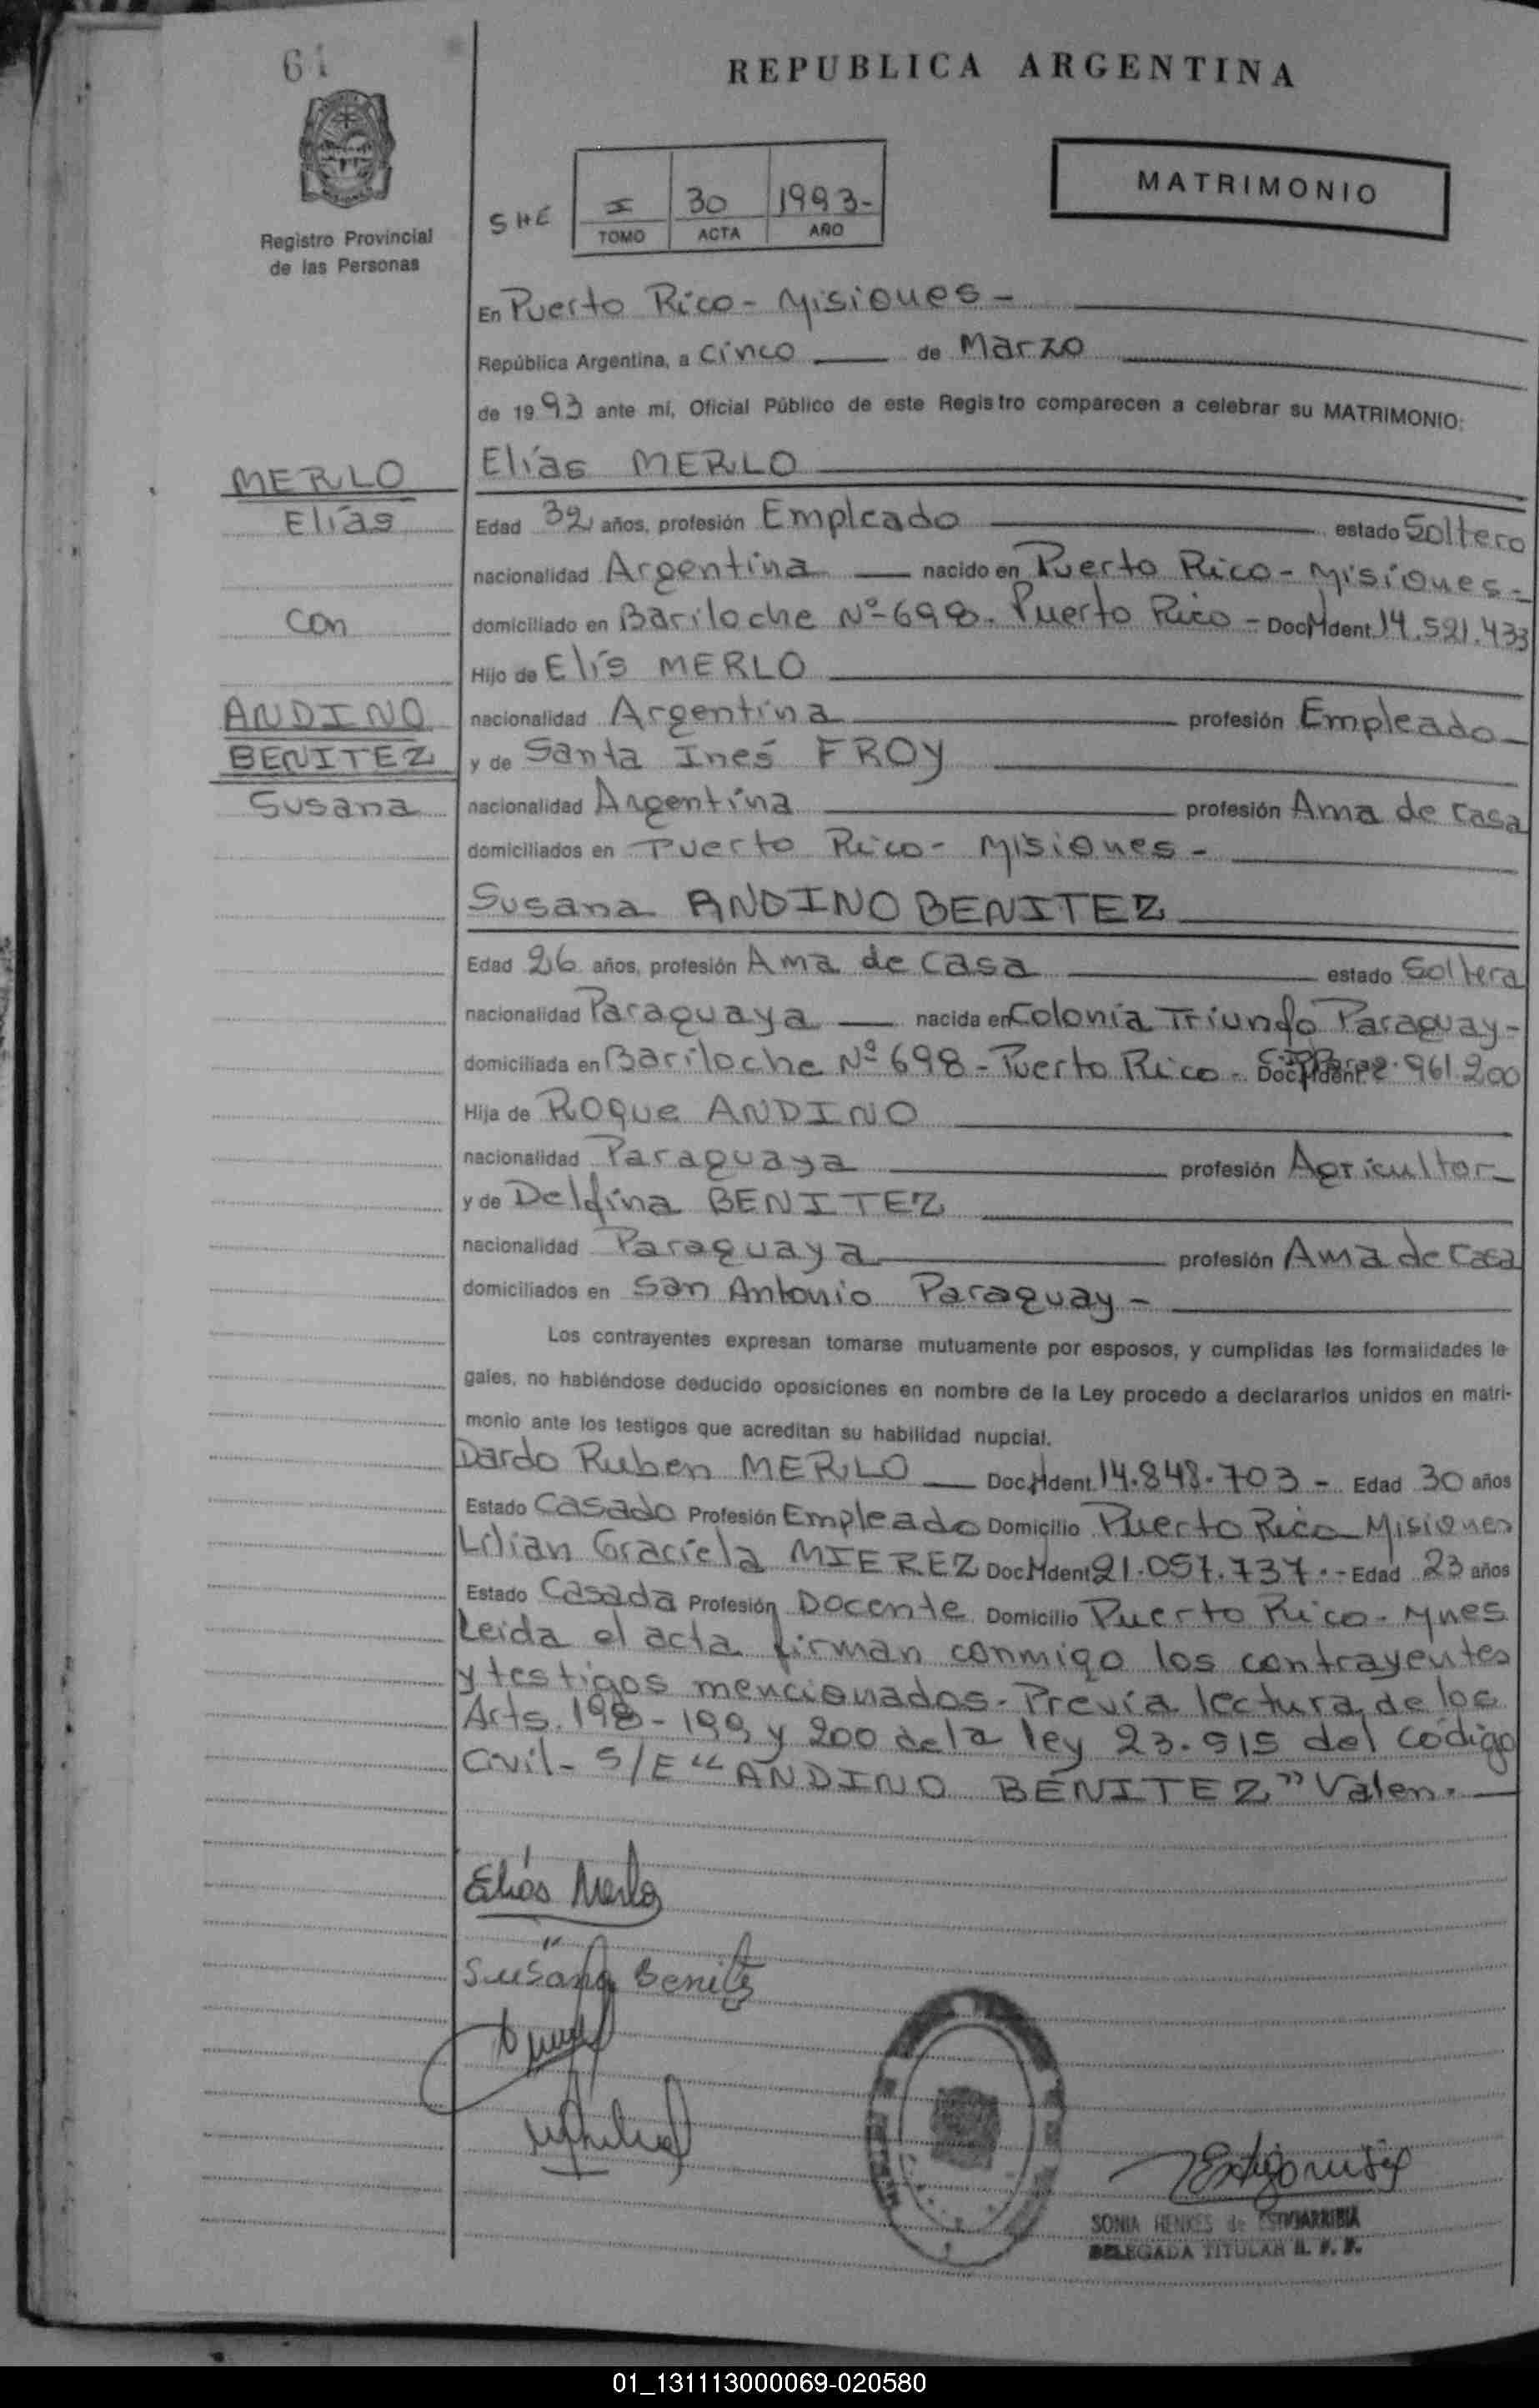 61
REPUBLICA ARGENTINA
MATRIMONIO
SHE I 30 1993-
TOMO ACTA AÑO
Registro Provincial
de las Personas
En Puerto Rico - Misiones -
República Argentina, a Cinco de Marzo
de 1993 ante mí, Oficial Público de este Registro comparecen a celebrar su MATRIMONIO:
MERLO
Elías
Con
ANDINO
BENITEZ
Susana
Elías MERLO
Edad 32 años, profesión Empleado estado Soltero
nacionalidad Argentina nacido en Puerto Rico - Misiones -
domiciliado en Bariloche Nº 698. Puerto Rico - Doc. Ident. 14.521.433
Hijo de Elís MERLO
nacionalidad Argentina profesión Empleado -
y de Santa Inés FROY
nacionalidad Argentina profesión Ama de Casa
domiciliados en Puerto Rico - Misiones -
Susana ANDINO BENITEZ
Edad 26 años, profesión Ama de Casa estado Soltera
nacionalidad Paraguaya nacida en Colonia Triunfo Paraguay -
domiciliada en Bariloche Nº 698 - Puerto Rico - Doc. Ident. 961.200
Hija de Roque ANDINO
nacionalidad Paraguaya profesión Agricultor -
y de Delfina BENITEZ
nacionalidad Paraguaya profesión Ama de Casa
domiciliados en San Antonio Paraguay -
Los contrayentes expresan tomarse mutuamente por esposos, y cumplidas las formalidades le-
gales, no habiéndose deducido oposiciones en nombre de la Ley procedo a declararlos unidos en matri-
monio ante los testigos que acreditan su habilidad nupcial.
Dardo Ruben MERLO Doc. Ident. 14.848.703 - Edad 30 años
Estado Casado Profesión Empleado Domicilio Puerto Rico - Misiones
Lilian Graciela MIEREZ Doc. Ident. 21.057.737.- Edad 23 años
Estado Casada Profesión Docente Domicilio Puerto Rico - Mnes
Leida el acta firman conmigo los contrayentes
y testigos mencionados - Previa lectura de los
Arts. 198 - 199 y 200 de la ley 23.515 del código
Civil - S/E "ANDINO BENITEZ" Valen. -
Elías Merlo
Susana Benitez
SONIA HENKES de ESTIGARRIBIA
DELEGADA TITULAR R. P. P.
01_131113000069-020580